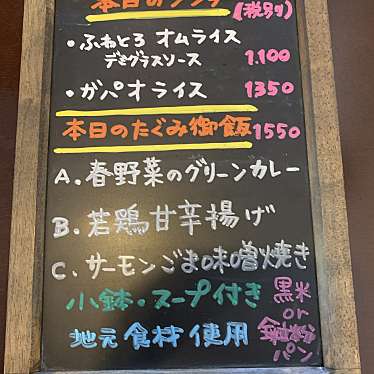 本日のランチ (税別)
・ふわとろ オムライス
デミグラスソース 1.100
・ガパオライス 1350
本日のたぐみ御飯 1550
A. 春野菜のグリーンカレー
B. 若鶏甘辛揚げ
C. サーモンごま味噌焼き
小鉢・スープ付き
地元食材使用
黒米
or
パン